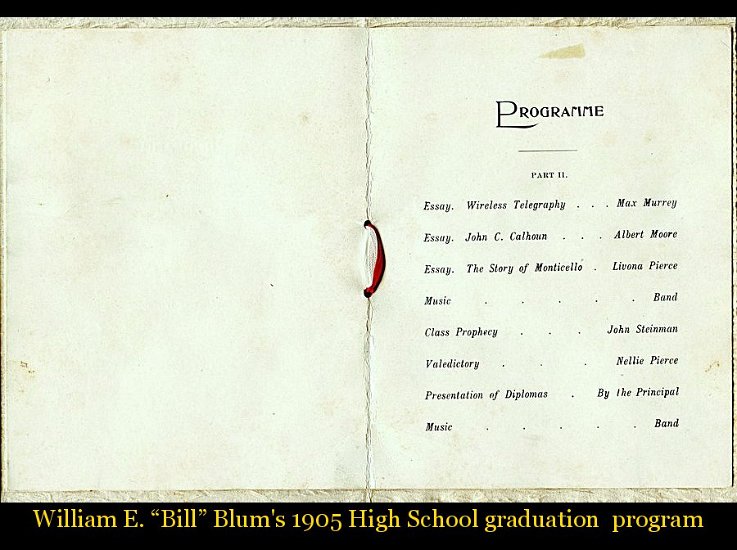 PROGRAMME
PART II.
Essay. Wireless Telegraphy . . . Max Murrey
Essay. John C. Calhoun . . . Albert Moore
Essay. The Story of Monticello . Livona Pierce
Music . . . . . Band
Class Prophecy . . . John Steinman
Valedictory . . . Nellie Pierce
Presentation of Diplomas . By the Principal
Music . . . . . Band
William E. “Bill” Blum's 1905 High School graduation program